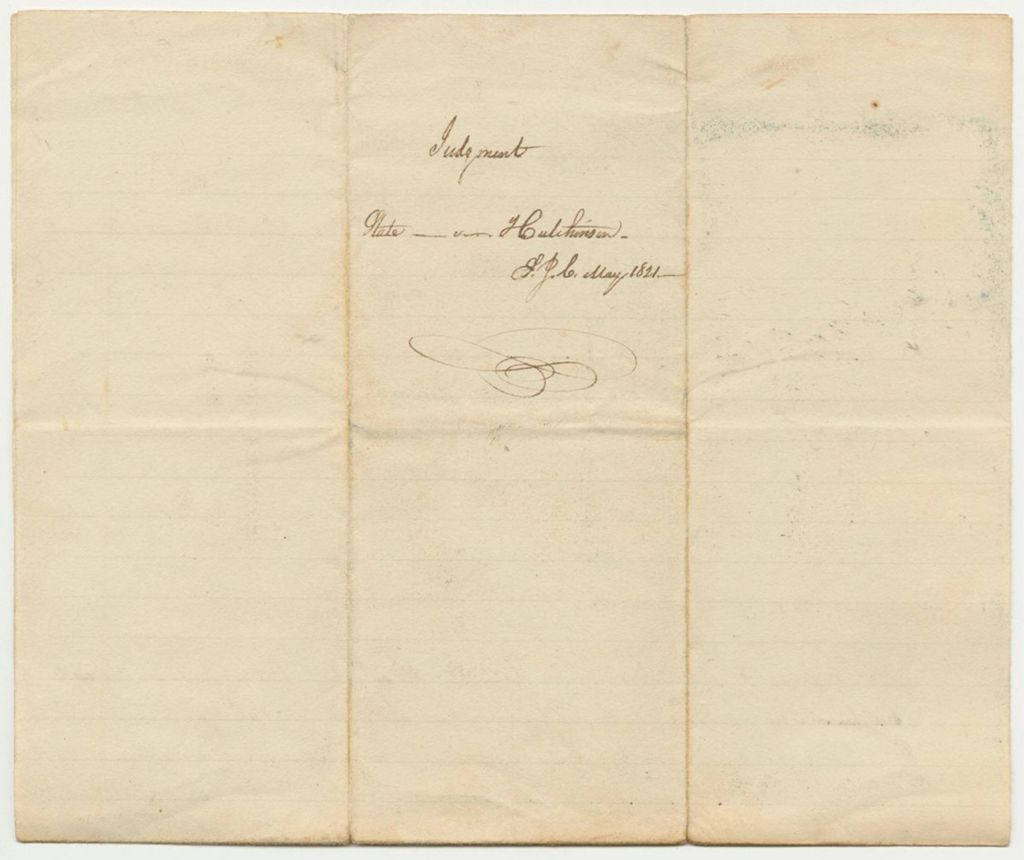 Judgment
State — vs — Hutchinson.
S. J. C. May 1821.